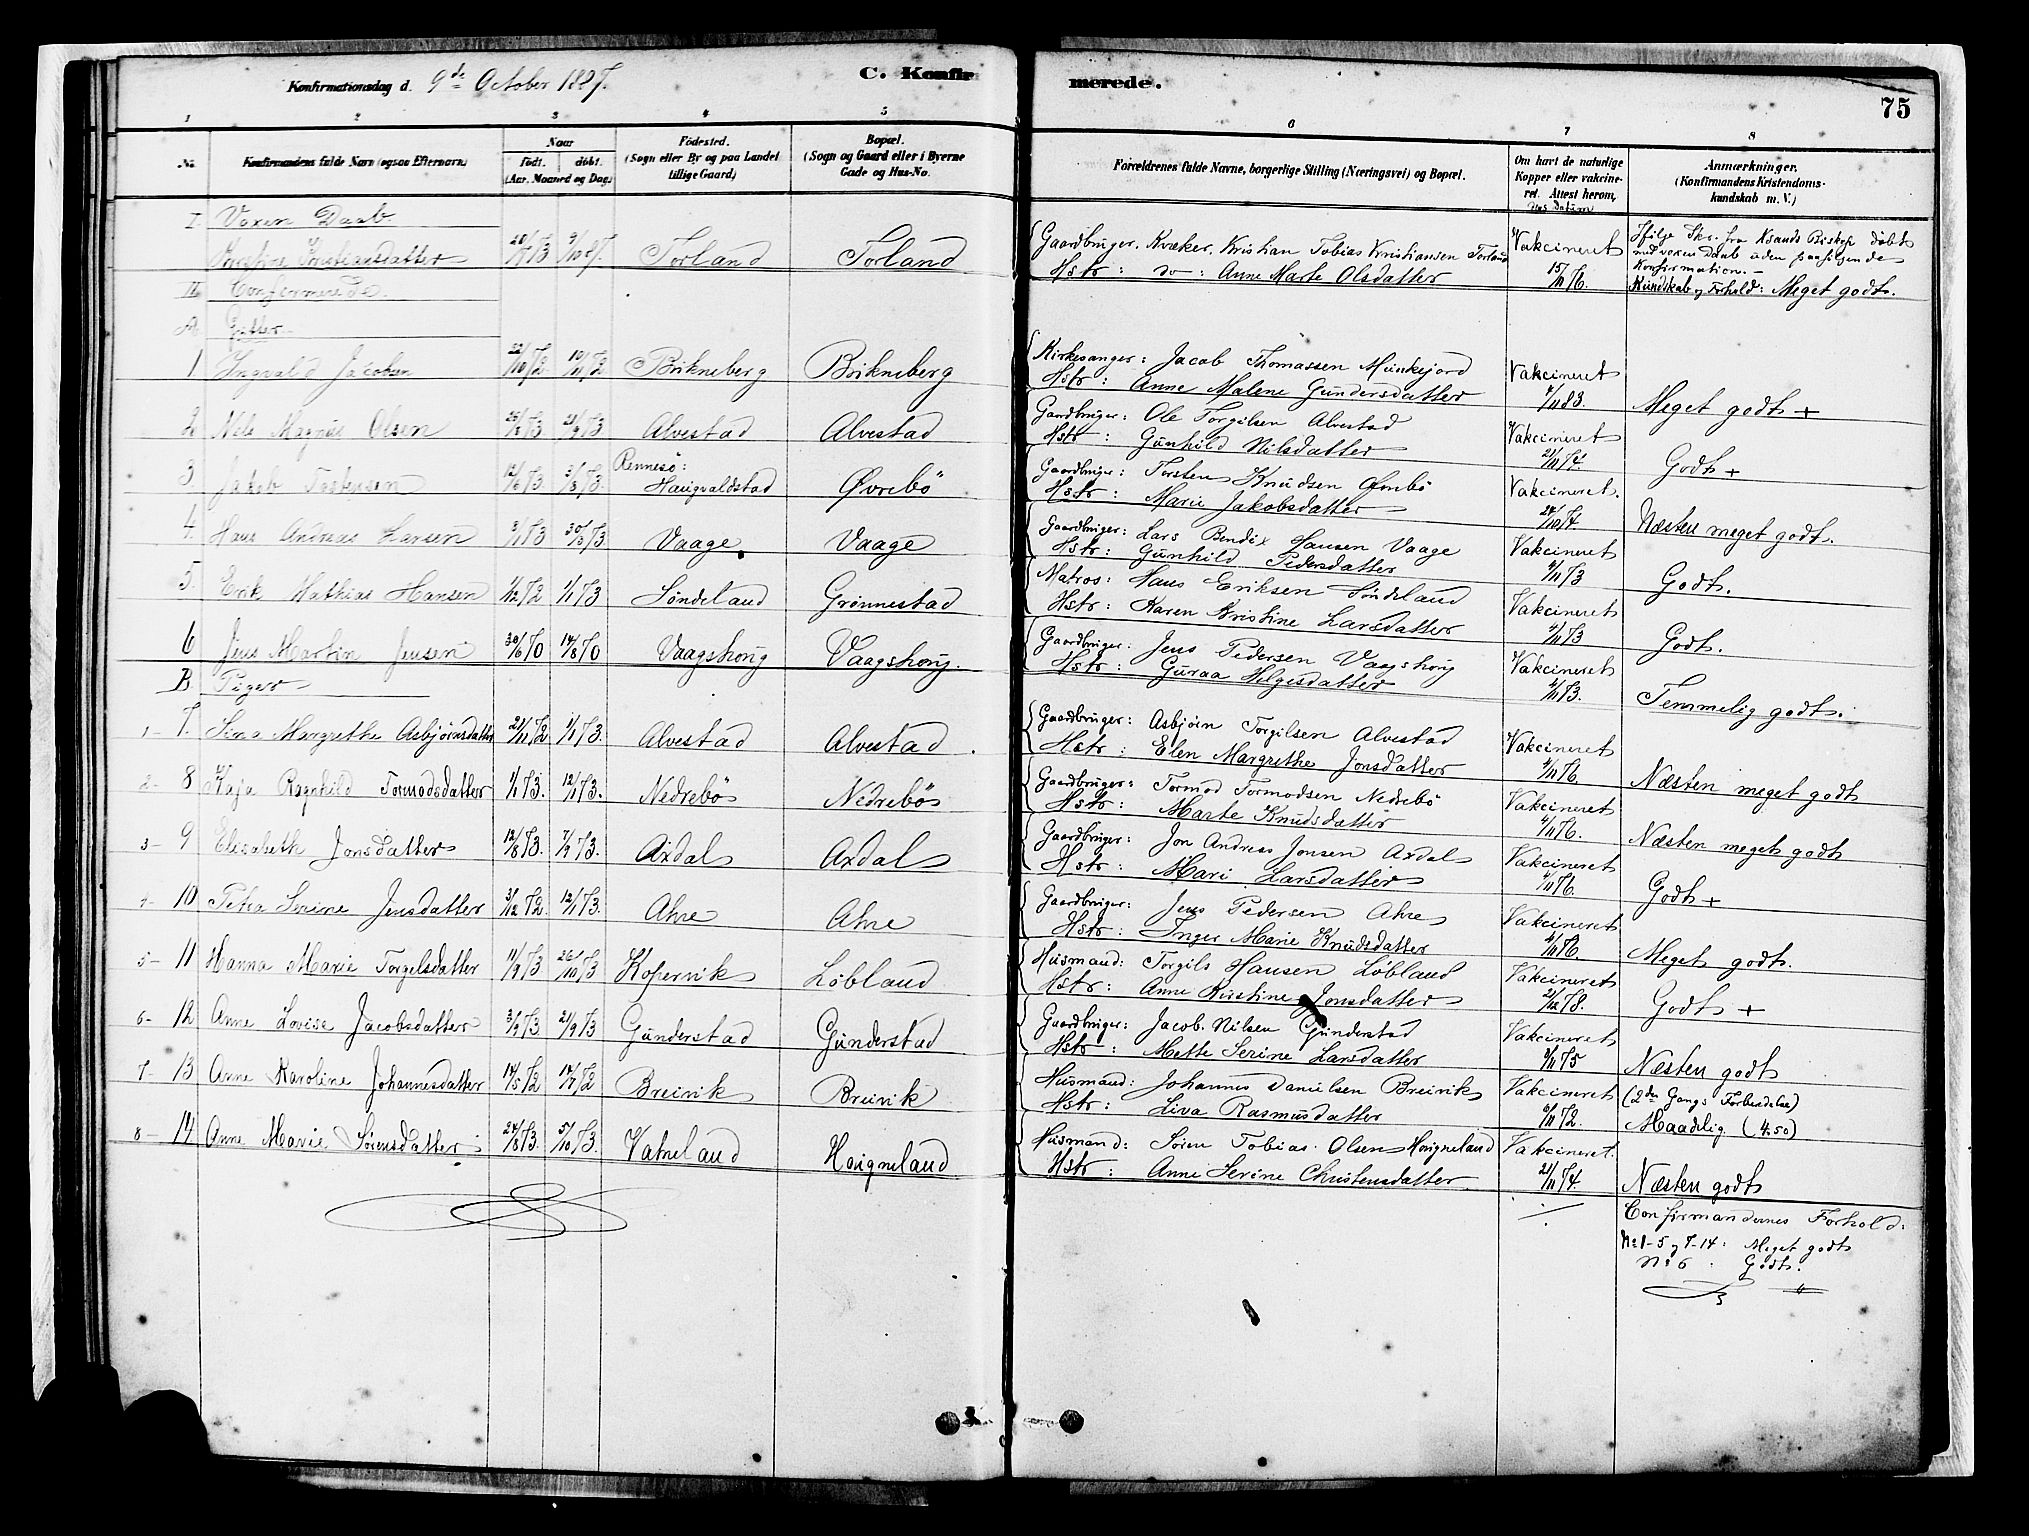 Konfirmationsdag d. 9de October 1887.
C. Konfirmerede.
75
1 2 3 4 5 6 7 8
No. Konfirmandens fulde Navn (ogsaa Efternavn) Naar født. døbt. (Aar. Maaned og Dag) Fødested. (Sogn eller By og paa Landet tillige Gaard) Bopæl. (Sogn og Gaard eller i Byerne Gade og Hus-No. Forældrenes fulde Navne, borgerlige Stilling (Næringsvei) og Bopæl. Om havt de naturlige Kopper eller vakcineret. Attest herom, dens Datum Anmærkninger. (Konfirmandens Kristendomskundskab m. V.)
I. Voxen Daab.
Kristine Kristiansdatter 73 9/10 87 Torland Torland Gaardbruger. Kvæker. Kristian Tobias Kristiansen Torland Vakcineret Ifølge Skr. fra Ksands Biskop døbt
Hstr: do: Anne Marte Olsdatter 15/11 76. med voxen Daab uden paafølgende
Konfirmation.-
Kundskab og Forhold: Meget godt.
II Confirmerede.
A. Gutter
1 Ingvald Jacobsen 22/10 72 10/11 72 Bikneberg Bikneberg Kirkesanger: Jacob Thomassen Munkejord Vakcineret
Hstr: Anne Malene Gundersdatter 4/11 83. Meget godt +
2 Nils Magnus Olsen 73 21/9 73 Alvestad Alvestad Gaardbruger: Ole Torgilsen Alvestad Vakcineret
Hstr: Gunhild Nilsdatter 21/11 74. Godt +
3. Jakob Tostensen 12/6 73 3/8 73. Rennesø: Haugvaldstad Øvrebö Gaardbruger: Torsten Knudsen Øvrebö Vakcineret.
Hstr: Marie Jakobsdatter 24/10 74 Næsten meget godt.
4. Hans Andreas Larsen 3/1 73 30/3 73 Vaage Vaage Gaardbruger: Lars Bendix Hansen Vaage Vakcineret
Hstr: Gunhild Pedersdatter 4/11 73 Godt.
5. Erik Mathias Hansen 1/12 72 1/1 73 Søndeland Grønnestad Matros: Hans Eriksen Søndeland Vakcineret
Hstr: Karen Kristine Larsdatter 4/11 73 Godt.
6 Jens Martin Jensen 30/6 70 14/8 70 Vaagshoug Vaagshoug. Gaardbruger: Jens Pedersen Vaagshoug Vakcineret
Hstr: Guraa Helgesdatter 4/11 73. Temmelig godt.
B. Piger
1- 7. Sina Margrethe Asbjørnsdatter 21/11 72 1/1 73. Alvestad Alvestad. Gaardbruger: Asbjørn Torgilsen Alvestad Vakcineret
Hstr: Elen Margrethe Jonsdatter 4/11 76. Næsten meget godt
2- 8 Kaja Ragnhild Tormodsdatter 1/1 73. 12/1 73. Nedrebö Nedrebö Gaardbruger: Tormod Tormodsen Nedrebö Vakcineret
Hstr: Marte Knudsdatter 4/11 76. Næsten meget godt
3- 9 Elisabeth Jonsdatter 12/8 73. 7/9 73. Axdal Axdal Gaardbruger: Jon Andreas Jonsen Axdal Vakcineret
Hstr: Mari Larsdatter 4/11 76. Godt +
4- 10 Petra Serine Jensdatter 3/12 72. 12/1 73. Ahre Ahre Gaardbruger: Jens Pedersen Ahre Vakcineret
Hstr: Inger Marie Knudsdatter 4/11 76. Meget godt.
5- 11 Hanna Marie Torgelsdatter 11/9 73 26/10 73 Kopervik Løbland Husmand: Torgils Hansen Løbland Vakcineret
Hstr: Anne Kirstine Jonsdatter 21/12 78. Godt +
6- 12 Anne Lovise Jacobsdatter 3/9 73 21/9 73 Gunderstad Gunderstad Gaardbruger: Jacob Nilsen Gunderstad Vakcineret
Hstr: Mette Serine Larsdatter 75 Næsten godt
7- 13 Anne Karoline Johannesdatter 14/5 72 14/7 72 Breivik Breivik Husmand: Johannes Danielsen Breivik Vakcineret (2den Gangs Forberedelse)
Hstr: Liva Rasmusdatter 6/11 72. Maadelig (4.50)
8- 14 Anne Marie Sørensdatter 24/8 73. 5/10 73. Vatneland Høigneland Husmand: Søren Tobias Olsen Høigneland Vakcineret.
Hstr: Anne Serine Christensdatter 21/11 74. Næsten godt
Confirmandernes Forhold:
No 1-5 og 7-14: Meget godt
No 6: Godt.